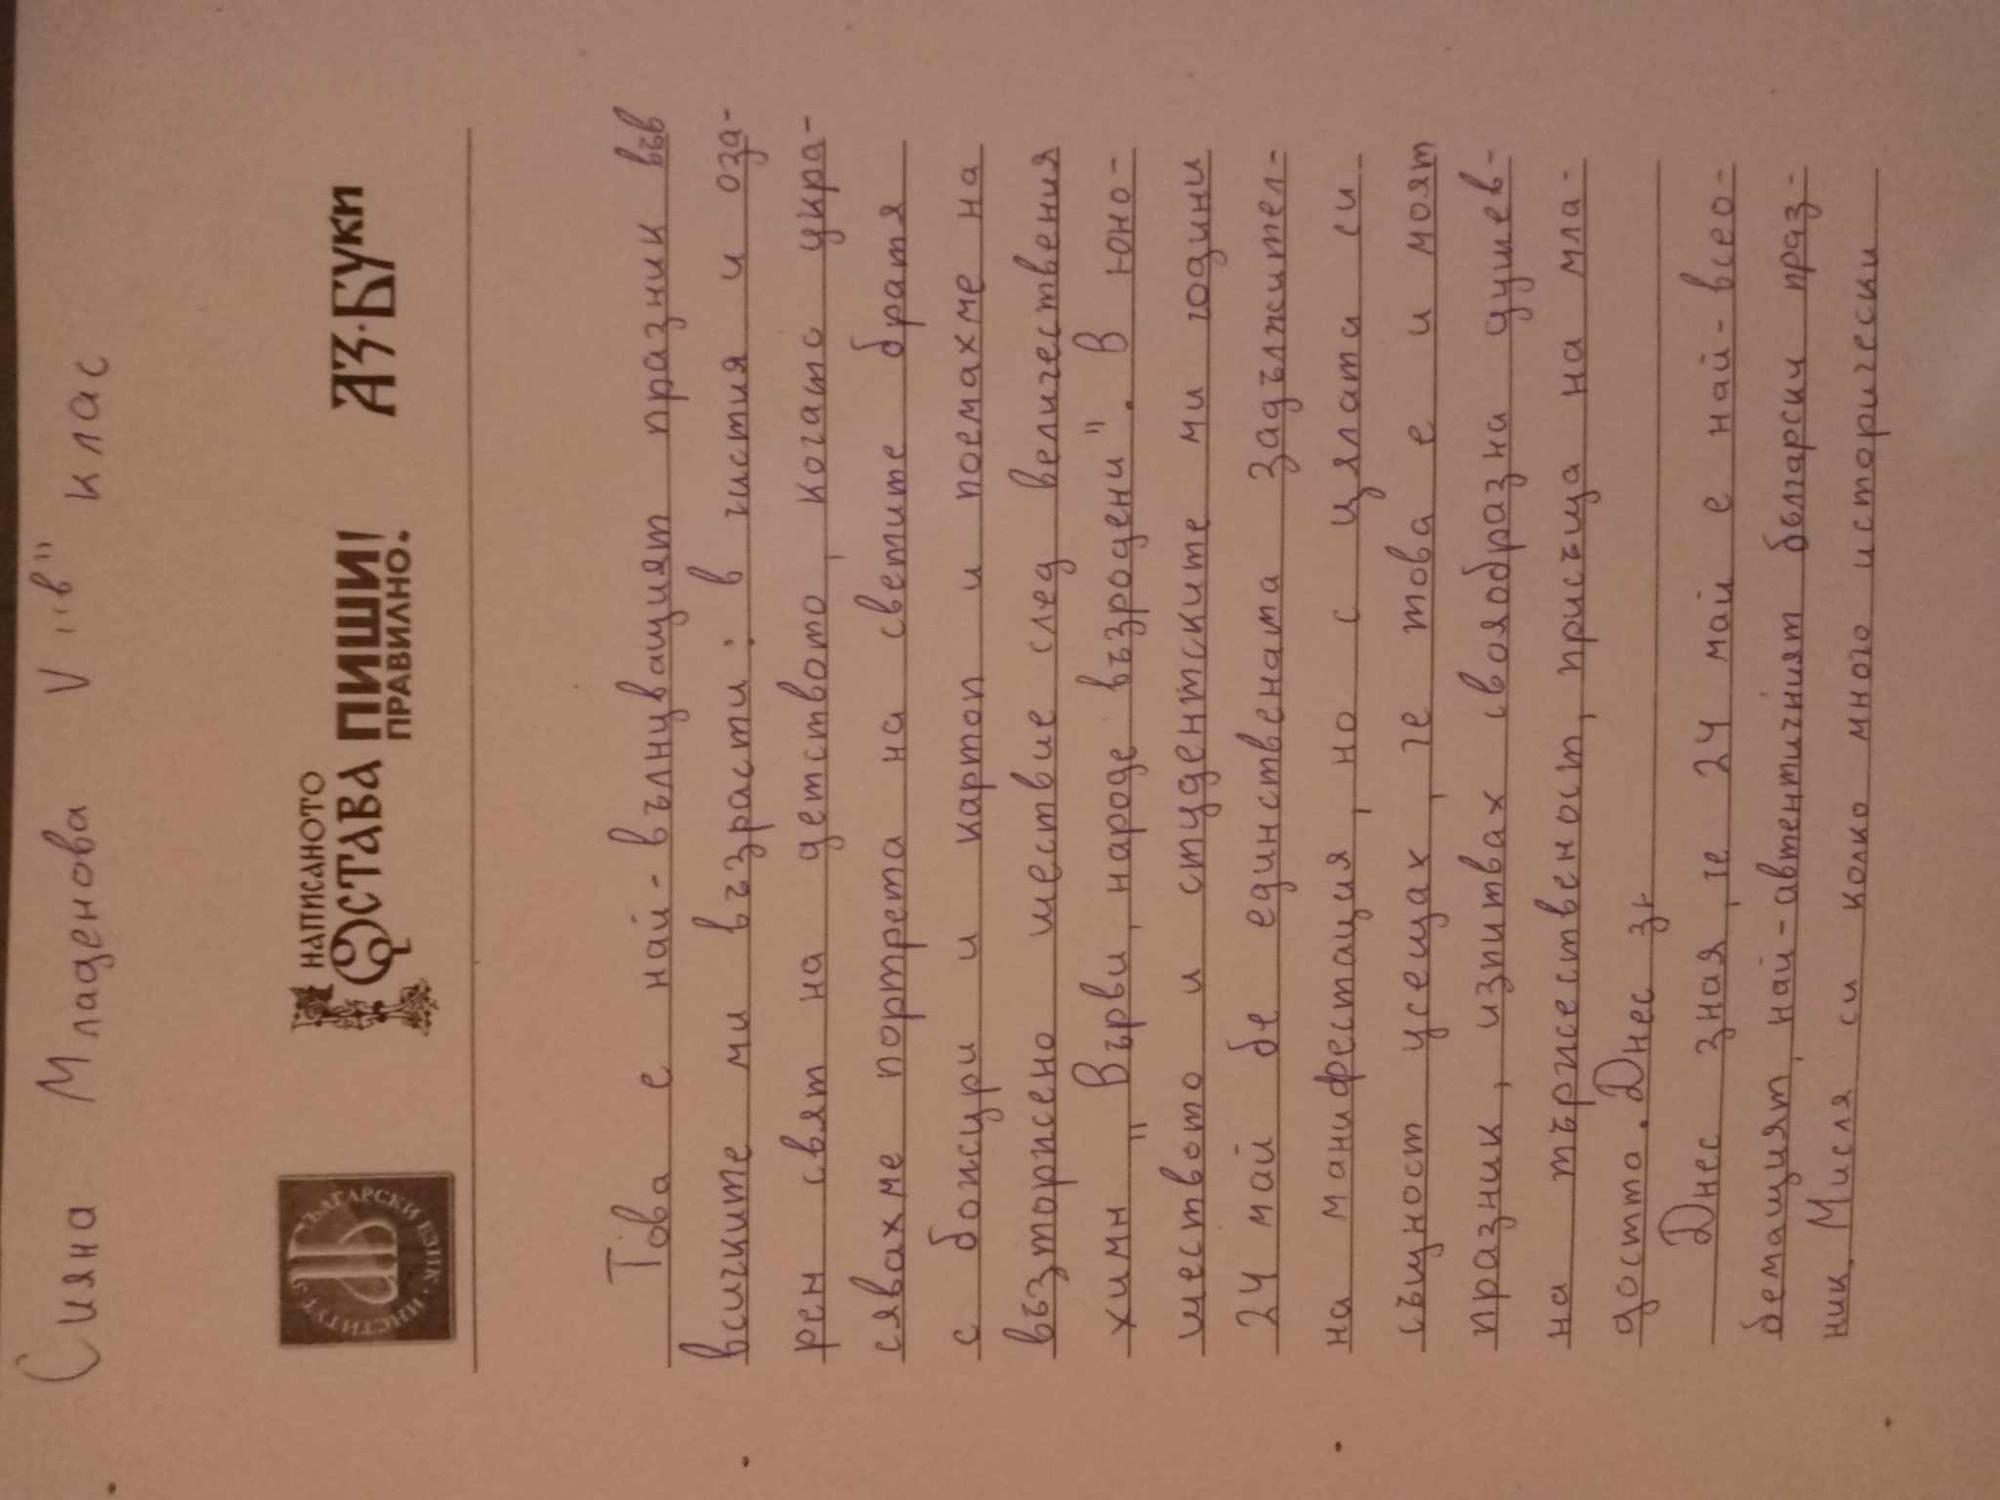 Сияна Младенова V "в" клас
ИНСТИТУТ ЗА БЪЛГАРСКИ ЕЗИК
НАПИСАНОТО
ОСТАВА ПИШИ!
ПРАВИЛНО.
АЗ·БУКИ
Това е най-вълнуващият празник във
всичките ми възрасти: в чистия и оза-
рен свят на детството, когато укра-
сявахме портрета на светите братя
с божури и картон и поемахме на
възторжено шествие след величествения
химн "Върви, народе възродени". В юно-
шеството и студентските ми години
24 май бе единствената задължител-
на манифестация, но с цялата си
същност усещах, че това е и моят
празник, изпитвах своябразна душев-
на тържественост, присъща на мла-
достта. Днес зн
Днес зная, че 24 май е най-всео-
бемащият, най-автентичният български праз-
ник. Мисля си колко много исторически